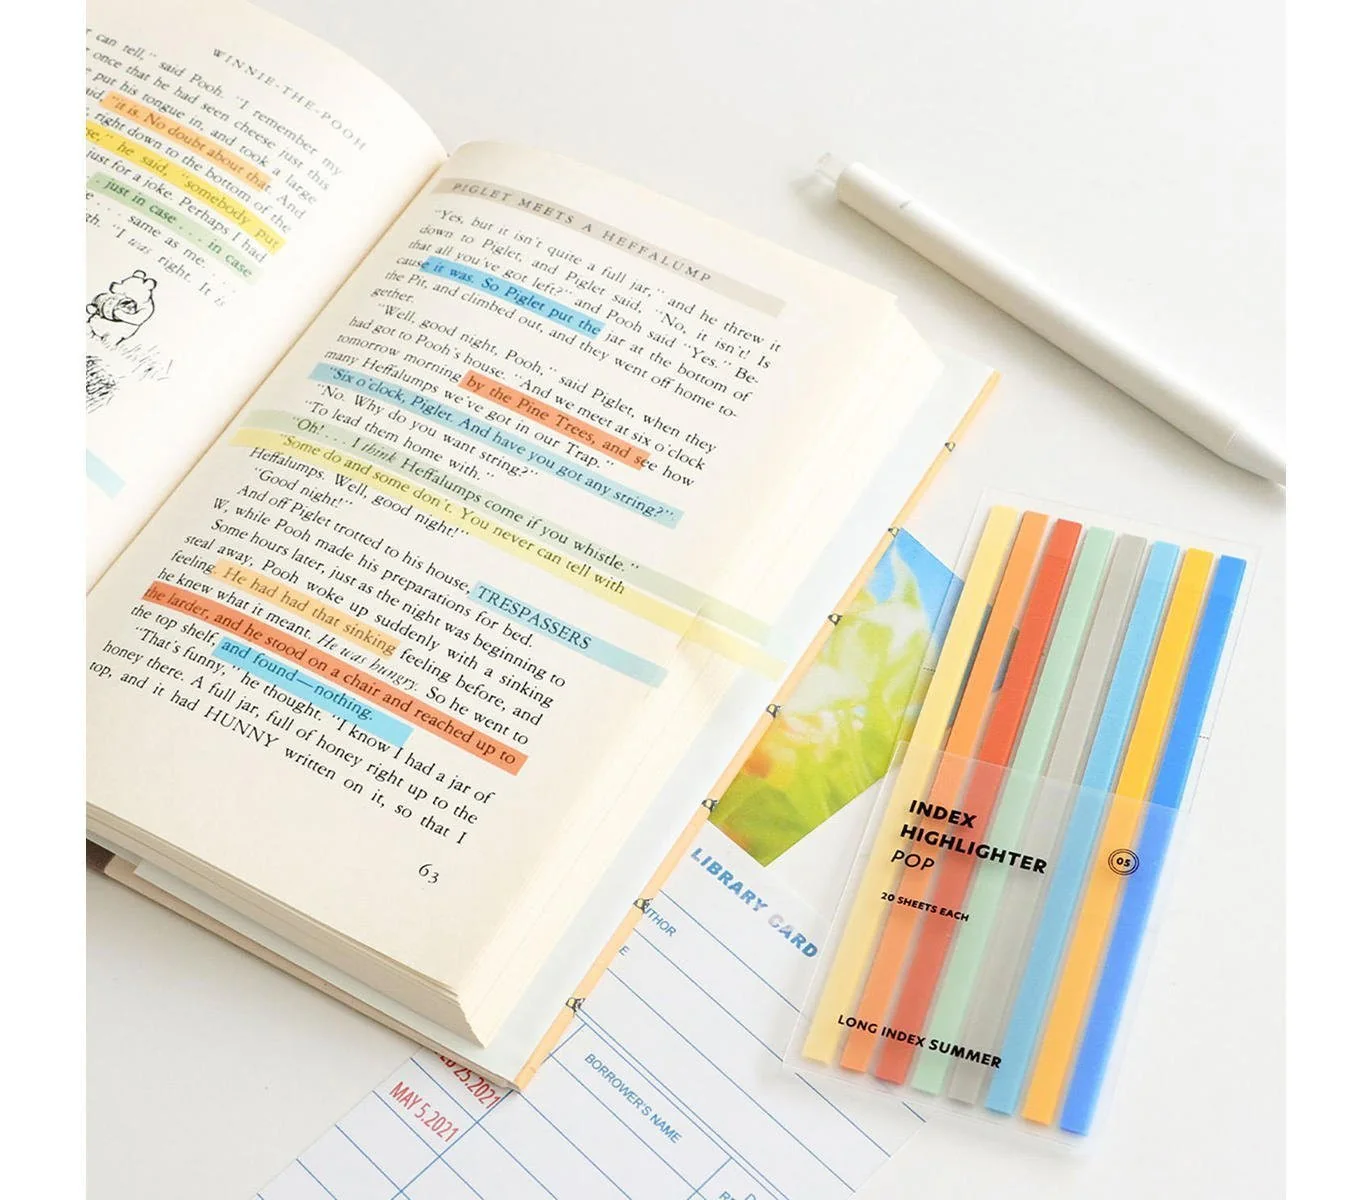 WINNIE-THE-POOH
can tell," said Pooh. "I remember my
once that he had seen cheese just this
put his tongue in, and took a large
"it is. No doubt about that. And
right down to the bottom of the
he said, "somebody put
just for a joke. Perhaps I had
. just in case . . . in case
same as me. . . .
"I was right. It is
PIGLET MEETS A HEFFALUMP
"Yes, but it isn't quite a full jar," and he threw it
down to Piglet, and Piglet said, "No, it isn't! Is
that all you've got left?" and Pooh said "Yes." Be-
cause it was. So Piglet put the jar at the bottom of
the Pit, and climbed out, and they went off home to-
gether.
"Well, good night, Pooh," said Piglet, when they
had got to Pooh's house. "And we meet at six o'clock
tomorrow morning by the Pine Trees, and see how
many Heffalumps we've got in our Trap."
"Six o'clock, Piglet. And have you got any string?"
"No. Why do you want string?"
"To lead them home with."
"Oh! . . . I think Heffalumps come if you whistle."
"Some do and some don't. You never can tell with
Heffalumps. Well, good night!"
"Good night!"
And off Piglet trotted to his house, TRESPASSERS
W, while Pooh made his preparations for bed.
Some hours later, just as the night was beginning to
steal away, Pooh woke up suddenly with a sinking
feeling. He had had that sinking feeling before, and
he knew what it meant. He was hungry. So he went to
the larder, and he stood on a chair and reached up to
the top shelf, and found—nothing.
"That's funny," he thought. "I know I had a jar of
honey there. A full jar, full of honey right up to the
top, and it had HUNNY written on it, so that I
63
INDEX
HIGHLIGHTER
POP
05
20 SHEETS EACH
LONG INDEX SUMMER
LIBRARY CARD
BORROWER'S NAME
25.2021
MAY 5.2021